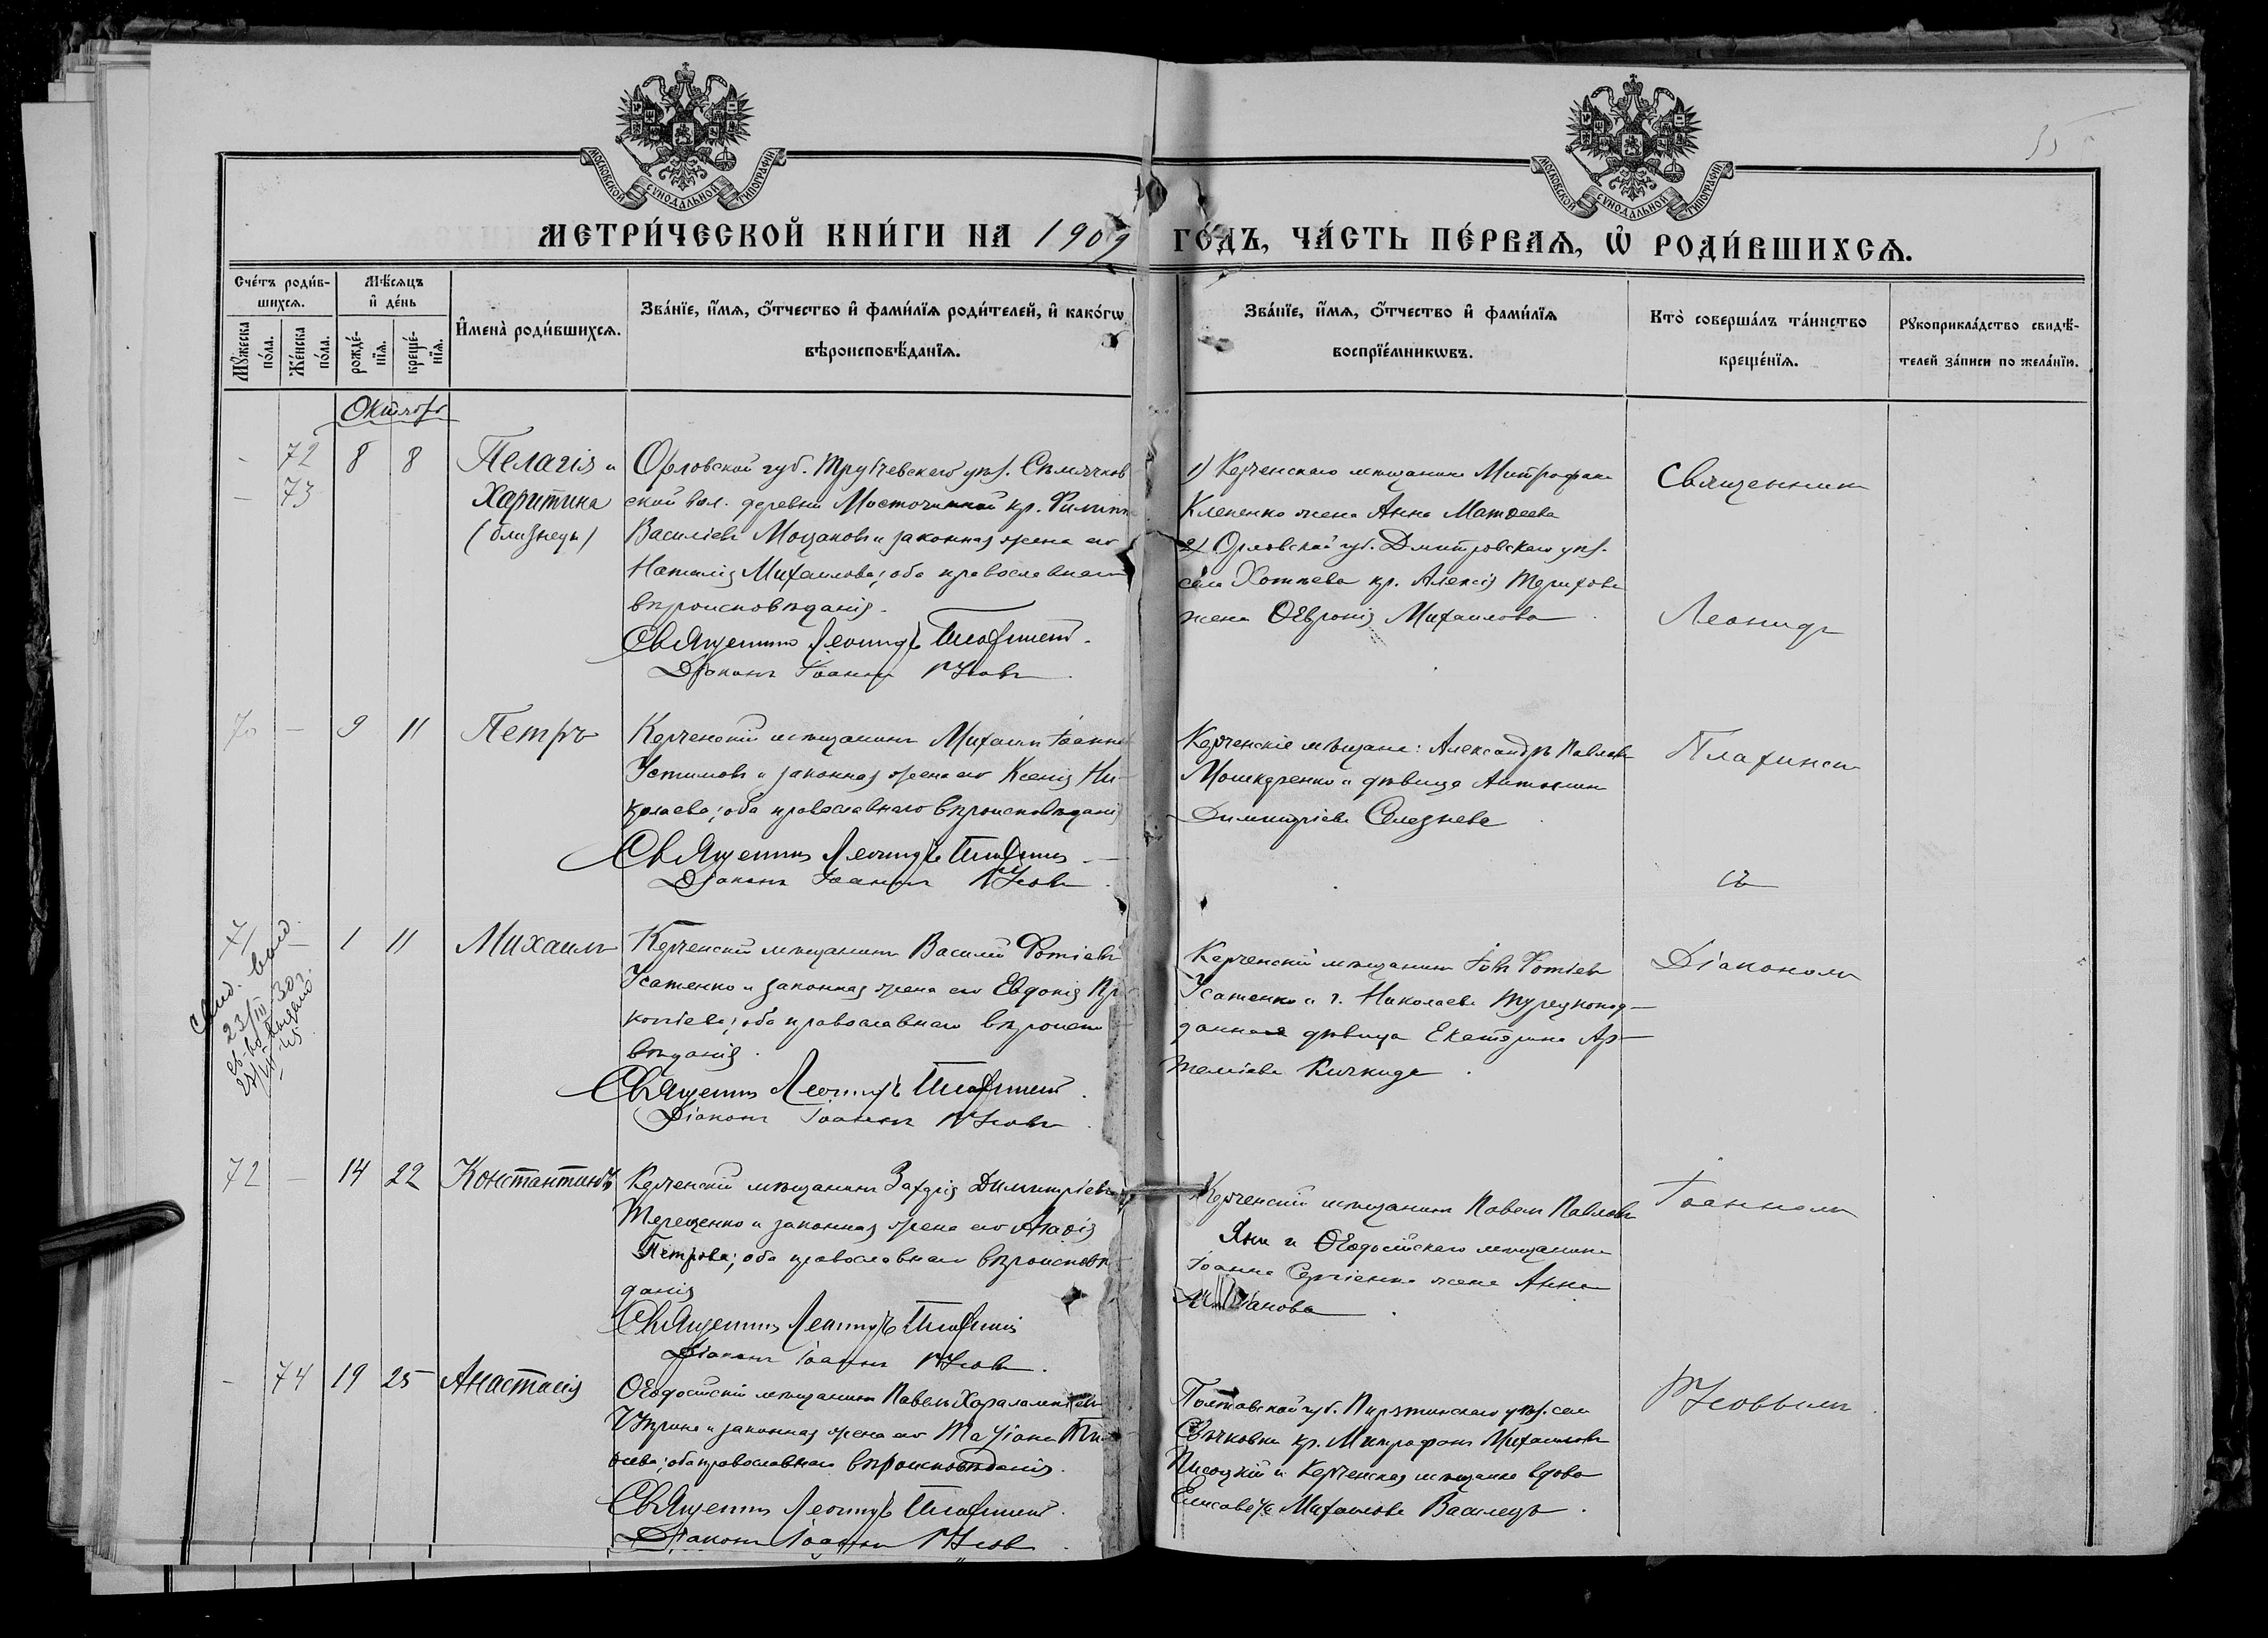 МОСКОВСКОЙ СУНОДАЛЬНОЙ ТИПОГРАФІИ
МОСКОВСКОЙ СУНОДАЛЬНОЙ ТИПОГРАФІИ
МЕТРИ́ЧЕСКОЙ КНИ́ГИ НА 1909 ГО́ДЪ, ЧА́СТЬ ПЕ́РВАЯ, Ѡ РОДИ́ВШИХСЯ.
Сче́тъ роди́в-
шихся.
Мꙋ́жеска
по́ла.
Же́нска
по́ла.
Мѣ́сяцъ
и҆ де́нь
рожде́-
нїя.
креще́-
нїя.
И҆мена̀ роди́вшихся.
Зва́нїе, и҆́мя, ѻ҆́тчество и҆ фами́лїя роди́телей, и҆ како́гѡ
вѣроисповѣ́данїя.
Зва́нїе, и҆́мя, ѻ҆́тчество и҆ фами́лїя
воспрїе́мникѡвъ.
Кто̀ соверша́лъ та́инство
креще́нїя.
Рꙋкоприкла́дство свидѣ́-
телей за́писи по жела́нїю.
Октябрь
- 72 8 8 Пелагія и
- 73 Харитина
(близнецы)
Орловской губ. Трубчевскаго уѣз. Сѣмячков
ской вол. деревни кр. Филиппъ
Василіевъ Моцаковъ и законная жена его
Наталія Михаилова; оба православнаго
вѣроисповѣданія.
Священникъ Леонидъ
Діаконъ Іоаннъ Усовъ.
1) Керченскаго мѣщанина Митрофана
Клепенко жена Анна Матѳеева
2) Орловской губ. Дмитровскаго уѣз.
села Хотѣева кр. Алексія Терихова
жена Ѳевронія Михаилова
Священникъ
Леонидъ
70 - 9 11 Петръ
Керченскій мѣщанинъ Михаилъ Іоанновъ
Устимовъ и законная жена его Ксенія Ни-
колаева; оба православнаго вѣроисповѣданія
Священникъ Леонидъ
Діаконъ Іоаннъ Усовъ.
Керченскіе мѣщане: Александръ Павловъ
и дѣвица Антонина
Димитріева Селезнева
съ
71 - 1 11 Михаилъ
23/III 30 г.
Керченскій мѣщанинъ Василій Фотіевъ
Усатенко и законная жена его Евдокія Про
копіева; оба православнаго вѣроиспо
вѣданія.
Священникъ Леонидъ
Діаконъ Іоаннъ Усовъ.
Керченскій мѣщанинъ Іовъ Фотіевъ
Усатенко и г. Николаева турецкопод-
данная дѣвица Екатерина Ар-
теміева
Діакономъ
72 - 14 22 Константинъ
Керченскій мѣщанинъ Захарія Димитріевъ
Терещенко и законная жена его Агаѳія
Петрова; оба православнаго вѣроисповѣ
данія
Священникъ Леонидъ
Діаконъ Іоаннъ Усовъ.
Керченскій мѣщанинъ Павелъ Павловъ
и Ѳеодосійскаго мѣщанина
Іоанна Сергіенко жена Анна
Іоанномъ
- 74 19 25 Анастасія
Ѳеодосійскій мѣщанинъ Павелъ Харалампіевъ
и законная жена его Татіана
оба православнаго вѣроисповѣданія.
Священникъ Леонидъ
Діаконъ Іоаннъ Усовъ.
Полтавской губ. Пирятинскаго уѣз. села
Сѣчковки кр. Митрофанъ Михаиловъ
и Керченская мѣщанка вдова
Елисавета Михаилова
Усовымъ